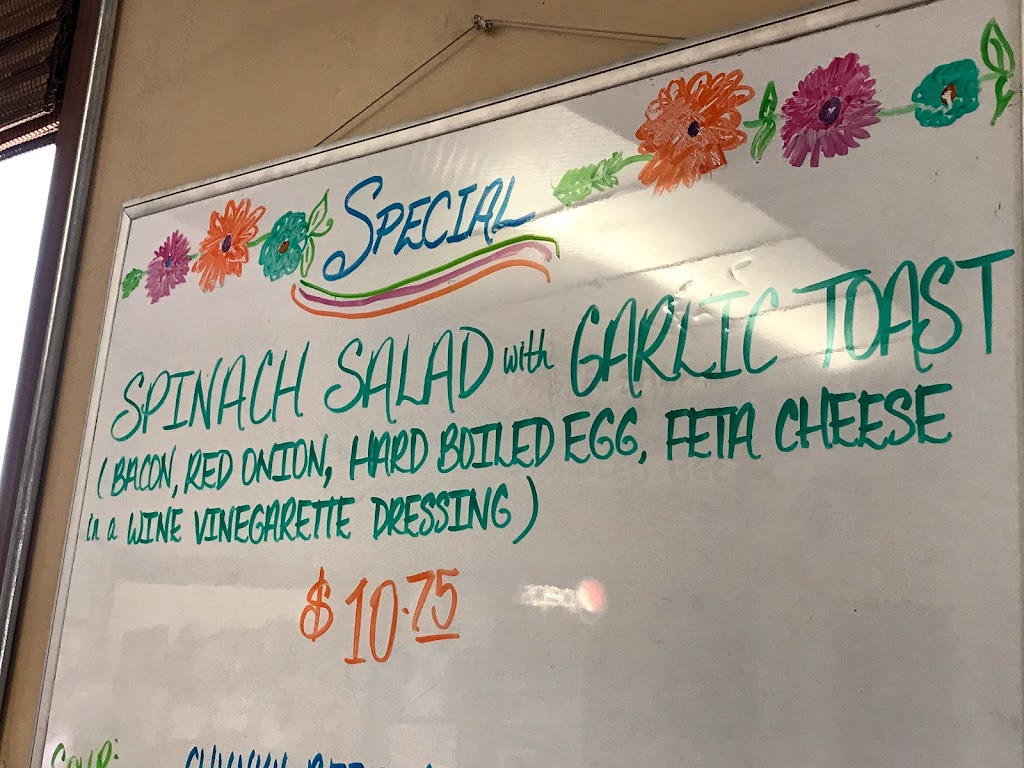 SPECIAL
SPINACH SALAD with GARLIC TOAST
(BACON, RED ONION, HARD BOILED EGG, FETA CHEESE
in a WINE VINEGARETTE DRESSING)
$10.75
SOUP: